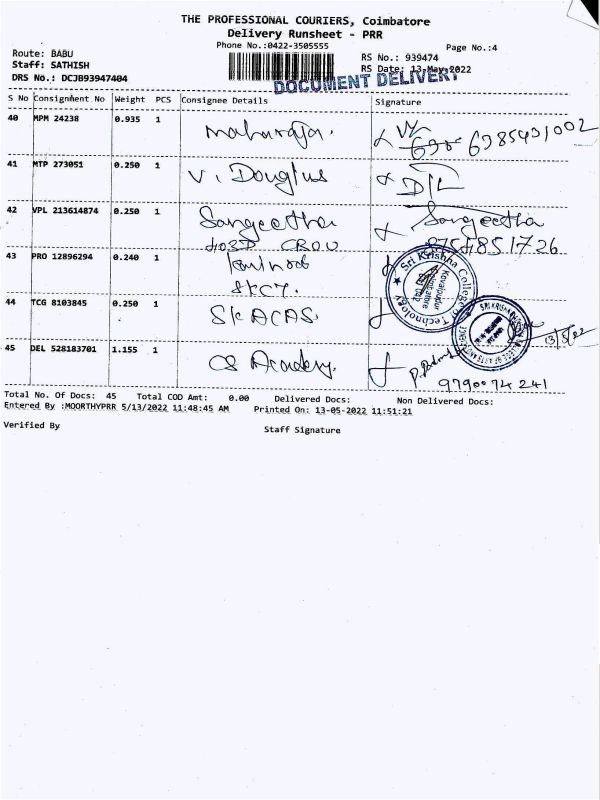 THE PROFESSIONAL COURIERS, Coimbatore
Delivery Runsheet - PRR
Phone No.:0422-3505555
Page No.:4
Route: BABU
RS No.: 939474
Staff: SATHISH
RS Date: 13-May-2022
DOCUMENT DELIVERY
DRS No.: DCJB93947404
S No Consignment No Weight PCS Consignee Details Signature
40 MPM 24238 0.935 1 Maharaja. 6985491002
41 MTP 273051 0.250 1 V. Douglus
42 VPL 213614874 0.250 1 Sangeetha Sangeetha
43 PRO 12896294 0.240 1
SKCT.
Sri Krishna College of Technology
Kovaipudur
Coimbatore
44 TCG 8103845 0.250 1 SKACAS.
13/5/22
45 DEL 528183701 1.155 1 CS Academy.
9790074241
Total No. Of Docs: 45 Total COD Amt: 0.00 Delivered Docs: Non Delivered Docs:
Entered By :MOORTHYPRR 5/13/2022 11:48:45 AM Printed On: 13-05-2022 11:51:21
Verified By Staff Signature